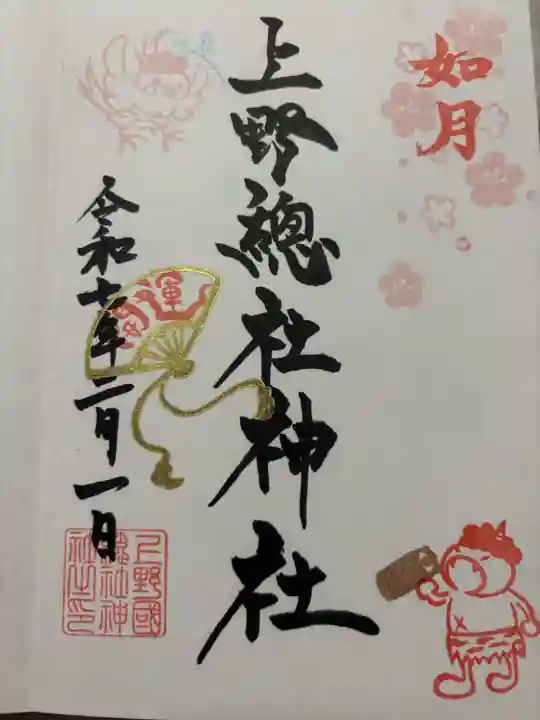 如月
上野總社神社
令和七年二月一日
運
上野國
總社神
社之印